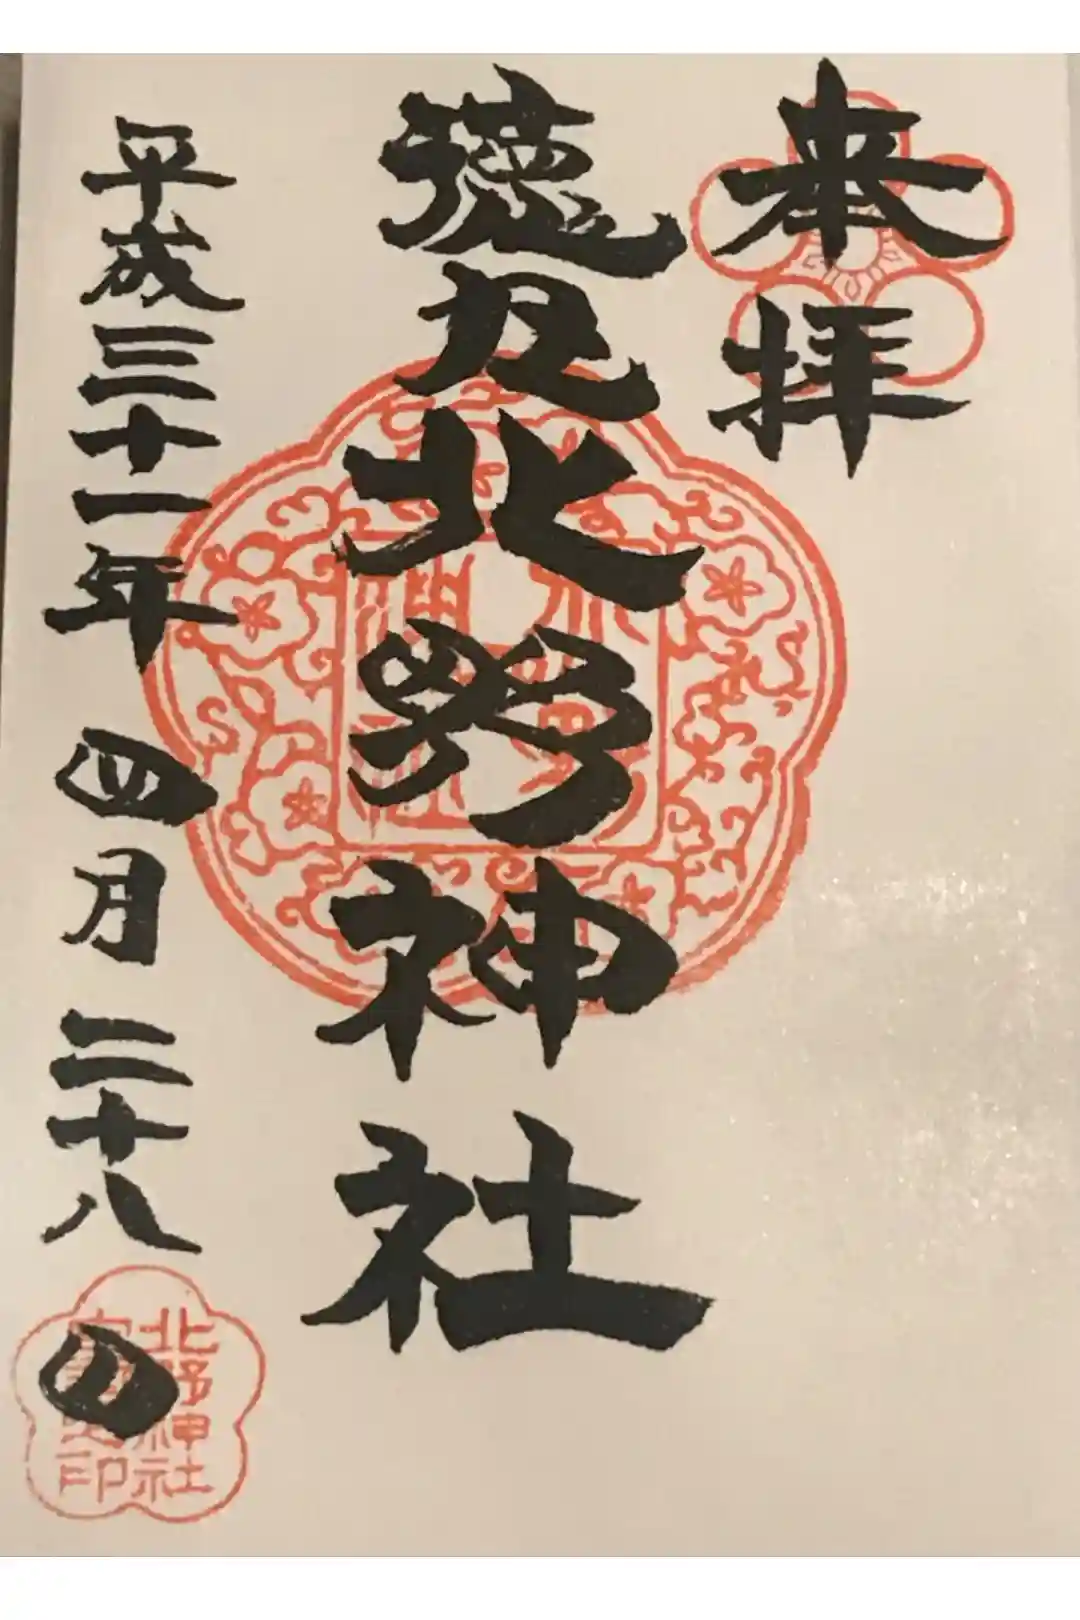 奉拝
徳丸北野神社
平成三十一年 四月 二十八日
北野神社